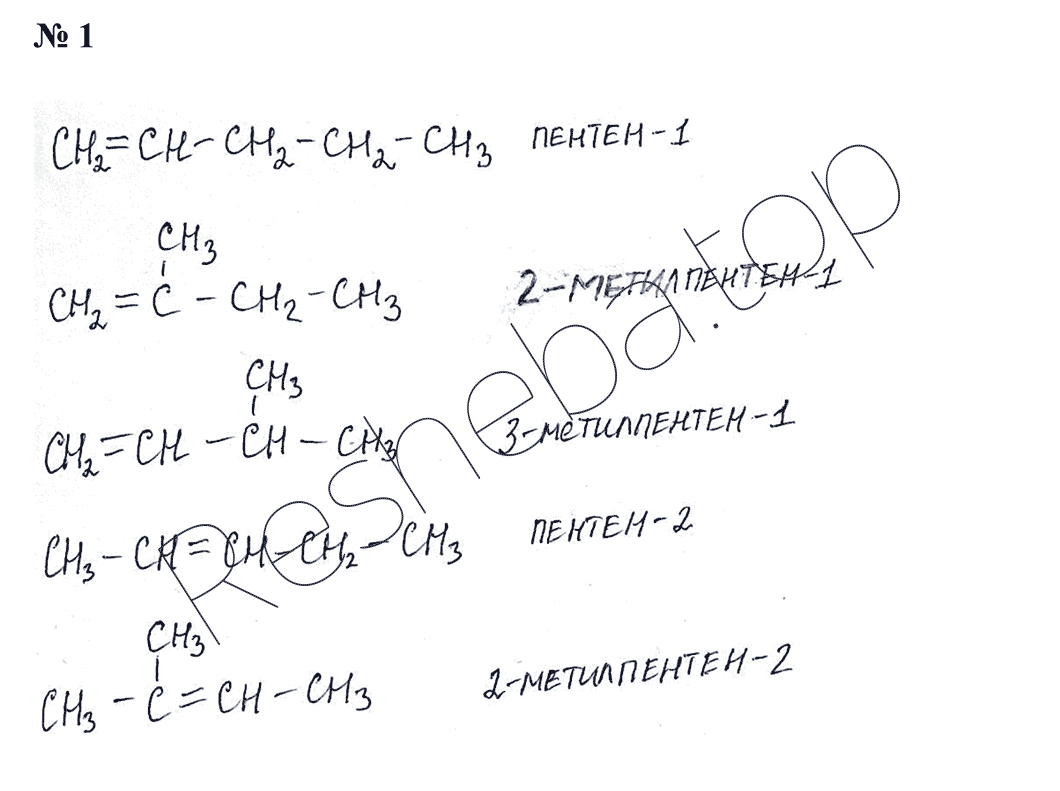 № 1
CH2=CH-CH2-CH2-CH3 ПЕНТЕН-1
CH3
CH2=C-CH2-CH3 2-МЕТИЛПЕНТЕН-1
CH3
CH2=CH-CH-CH3 3-метилпентен-1
CH3-CH=CH-CH2-CH3 ПЕНТЕН-2
CH3
CH3-C=CH-CH3 2-МЕТИЛПЕНТЕН-2
Resheba.top